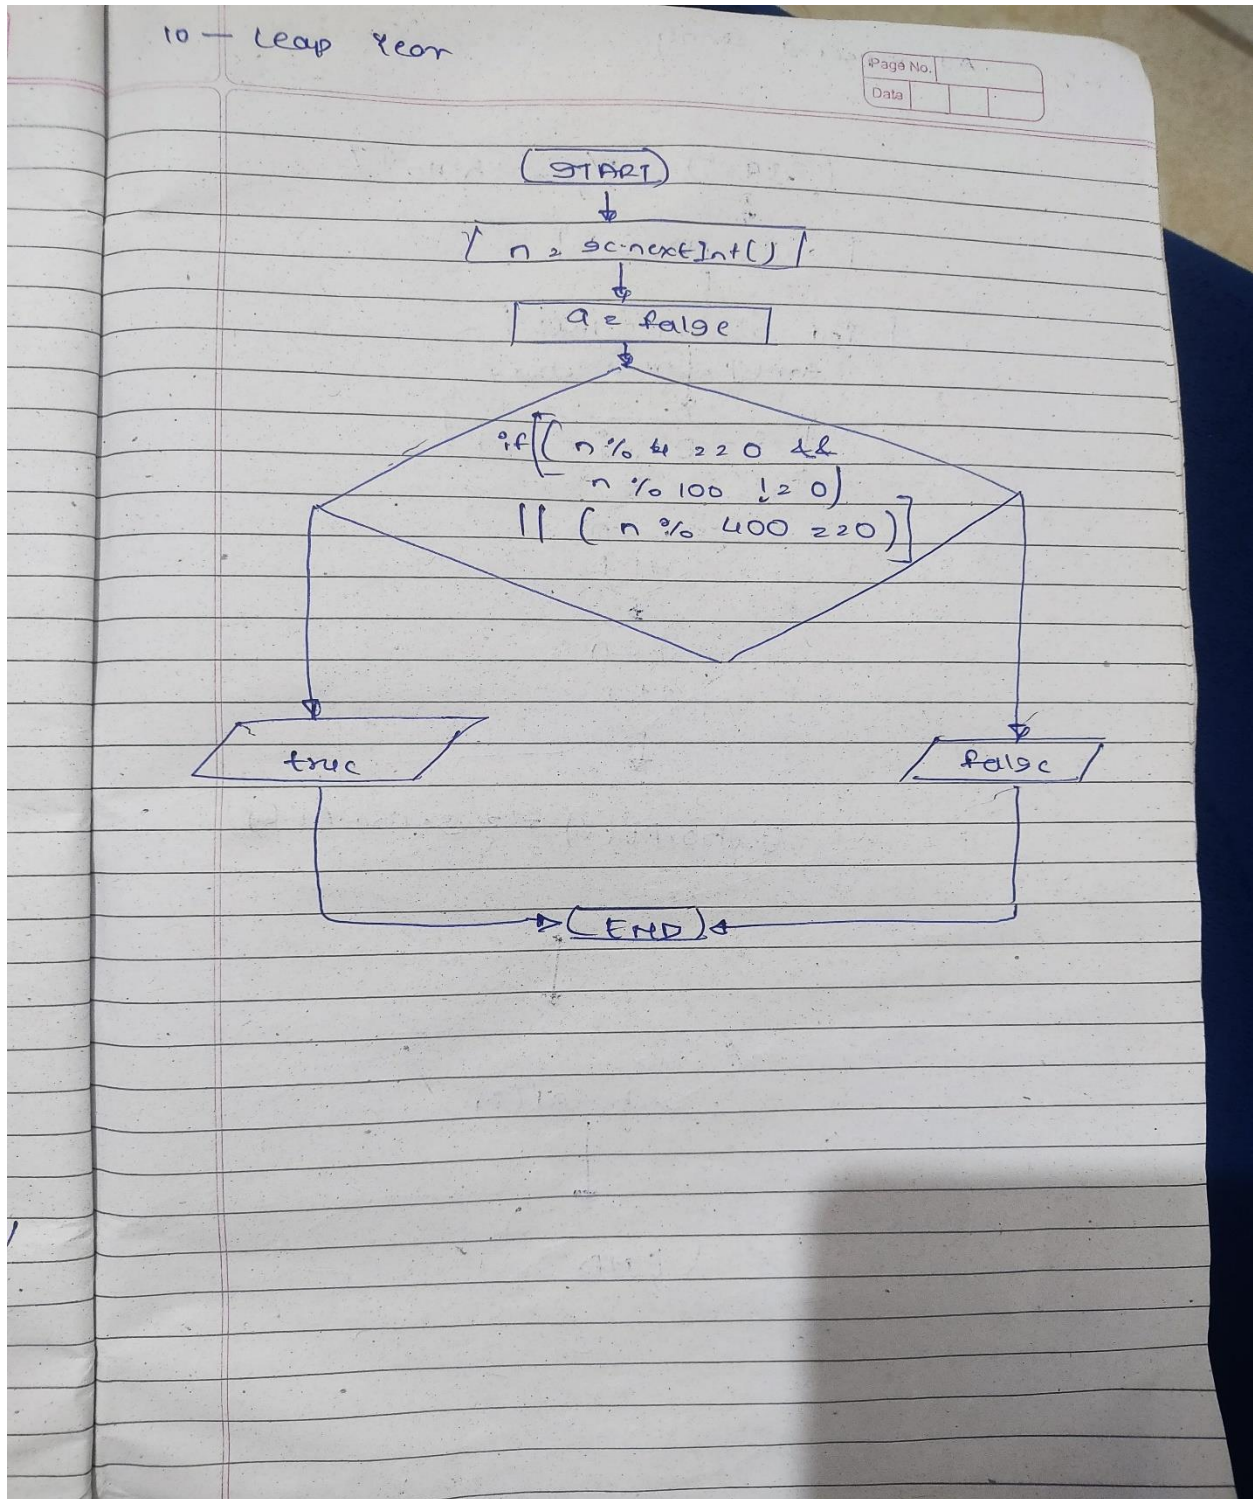 10 — Leap Year
Page No.
Date
START
n = sc.nextInt()
a = false
if [( n % 4 == 0 &&
n % 100 != 0)
|| ( n % 400 == 0 )]
true
false
END